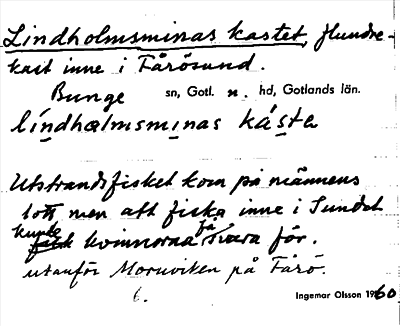 Lindholmsminas kastet, flundre-
kast inne i Fårösund.
Bunge sn, Gotl. n. hd, Gotlands län.
lindhælmsminas kásta
Utstrandsfisket kom på männens
lott men att fiska inne i Sundet
kunde kvinnorna få svara för.
utanför Moruviken på Fårö.
6.
Ingemar Olsson 1960